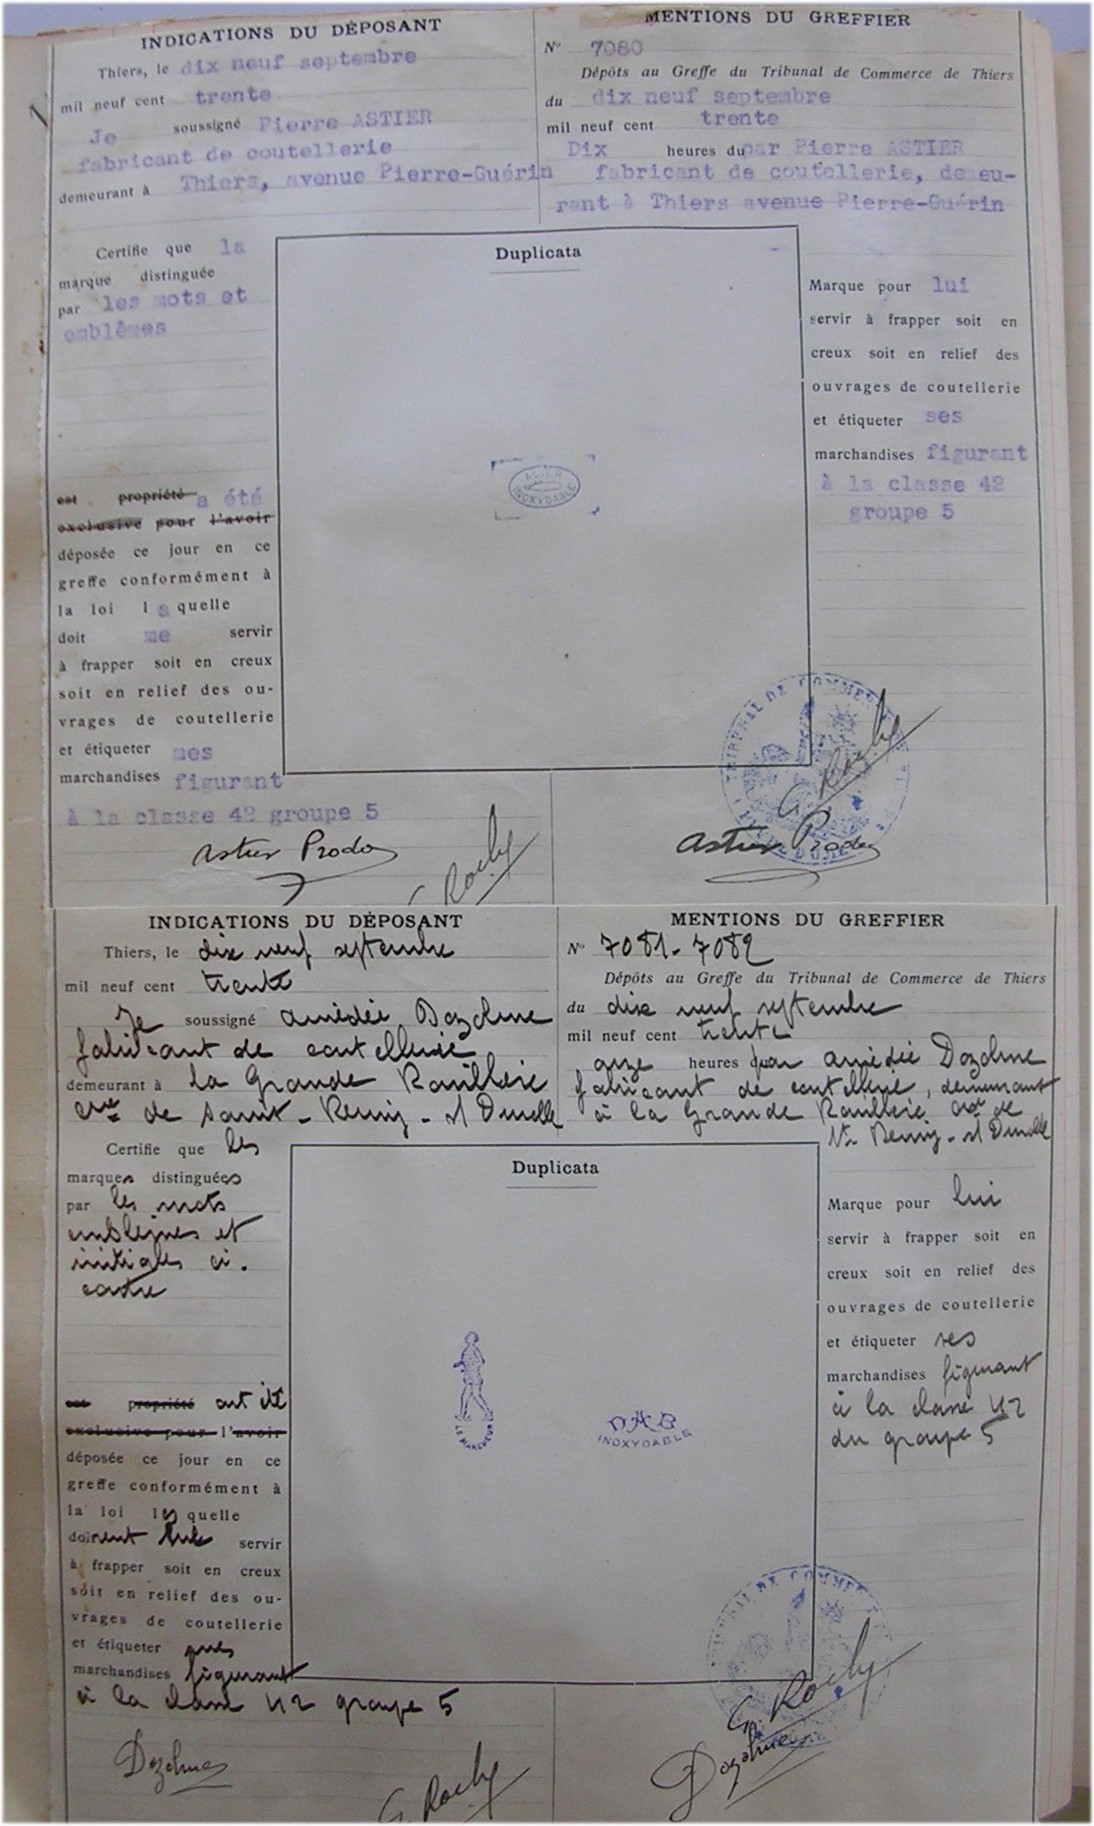 INDICATIONS DU DÉPOSANT
Thiers, le dix neuf septembre
mil neuf cent trente
Je soussigné Pierre ASTIER
fabricant de coutellerie
demeurant à Thiers, avenue Pierre-Guérin
MENTIONS DU GREFFIER
N° 7080
Dépôts au Greffe du Tribunal de Commerce de Thiers
du dix neuf septembre
mil neuf cent trente
Dix heures du par Pierre ASTIER
fabricant de coutellerie, demeu-
rant à Thiers avenue Pierre-Guérin
Certifie que la
marque distinguée
par les mots et
emblêmes
est propriété a été
exclusive pour l'avoir
déposée ce jour en ce
greffe conformément à
la loi laquelle
doit me servir
à frapper soit en creux
soit en relief des ou-
vrages de coutellerie
et étiqueter mes
marchandises figurant
à la classe 42 groupe 5
Duplicata
INOXYDABLE
Marque pour lui
servir à frapper soit en
creux soit en relief des
ouvrages de coutellerie
et étiqueter ses
marchandises figurant
à la classe 42
groupe 5
TRIBUNAL DE COMMERCE
G Rochy
Astier Prodon
G Rochy
Astier Prodon
INDICATIONS DU DÉPOSANT
Thiers, le dix neuf septembre
mil neuf cent trente
Je soussigné Amédée Dozolme
fabricant de coutellerie
demeurant à la Grande
cne de Saint-Remy-s/Durolle
MENTIONS DU GREFFIER
N° 7081-7082
Dépôts au Greffe du Tribunal de Commerce de Thiers
du dix neuf septembre
mil neuf cent trente
onze heures par Amédée Dozolme
fabricant de coutellerie, demeurant
à la Grande cne de
St Remy-s/Durolle
Certifie que les
marques distinguées
par les mots
emblèmes et
initiales ci-
contre
est propriété ont été
exclusive pour l'avoir
déposée ce jour en ce
greffe conformément à
la loi lesquelle
doivent servir
à frapper soit en creux
soit en relief des ou-
vrages de coutellerie
et étiqueter mes
marchandises figurant
à la classe 42 groupe 5
Duplicata
LE MARCHEUR
DAB
INOXYDABLE
Marque pour lui
servir à frapper soit en
creux soit en relief des
ouvrages de coutellerie
et étiqueter ses
marchandises figurant
à la classe 42
du groupe 5
TRIBUNAL DE COMMERCE
G. Rochy
Dozolme
G Rochy
Dozolme